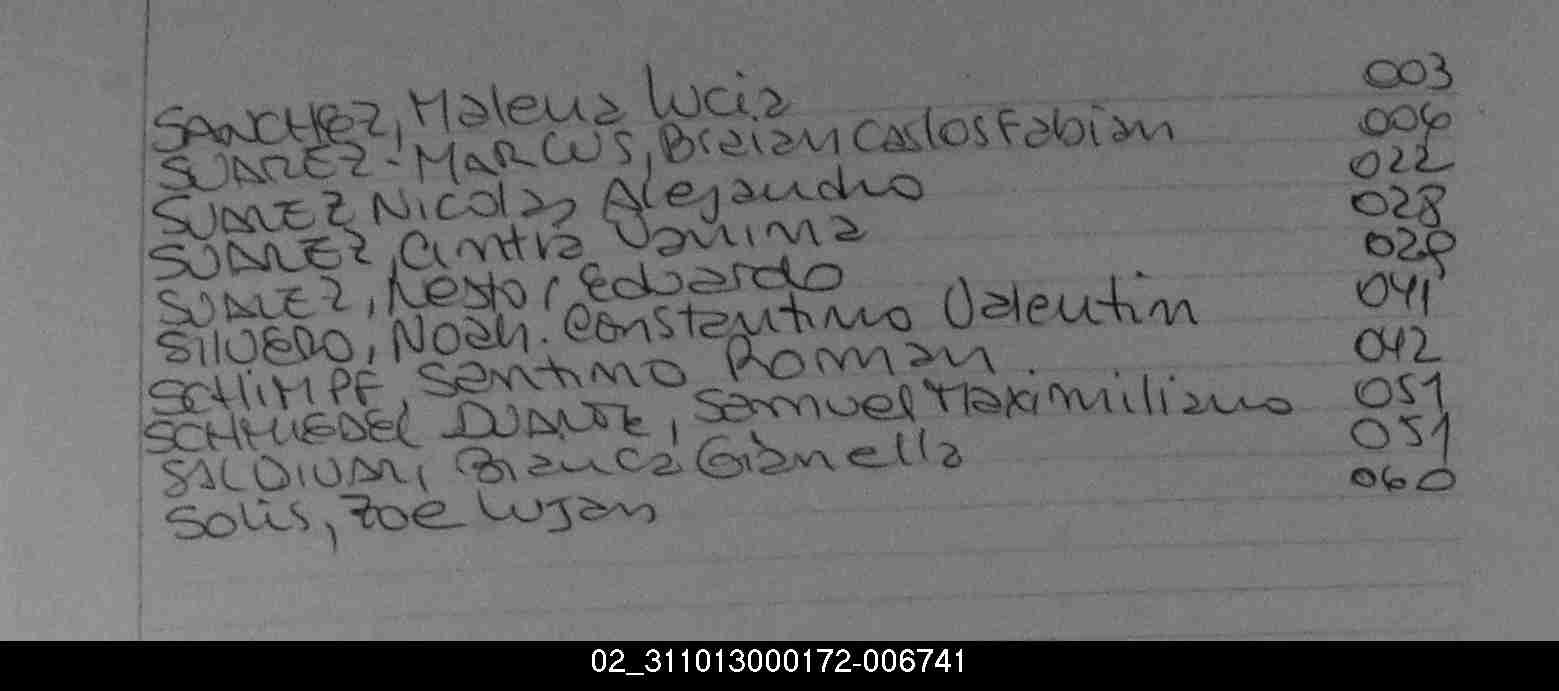 SANCHEZ, Malena Lucia 003
SUAREZ-MARCUS, Braian Carlos Fabian 006
SUAREZ Nicolas Alejandro 022
SUAREZ, Cintia Vanina 028
SUAREZ, Nestor Eduardo 029
SILVERO, Noah. Constantino Valentin 041
SCHIMPF, Santino Roman 042
SCHMIEDEL DUARTE, Samuel Maximiliano 051
SALDIVAR, Bianca Gianella 051
SOLIS, Zoe Lujan 060
02_311013000172-006741